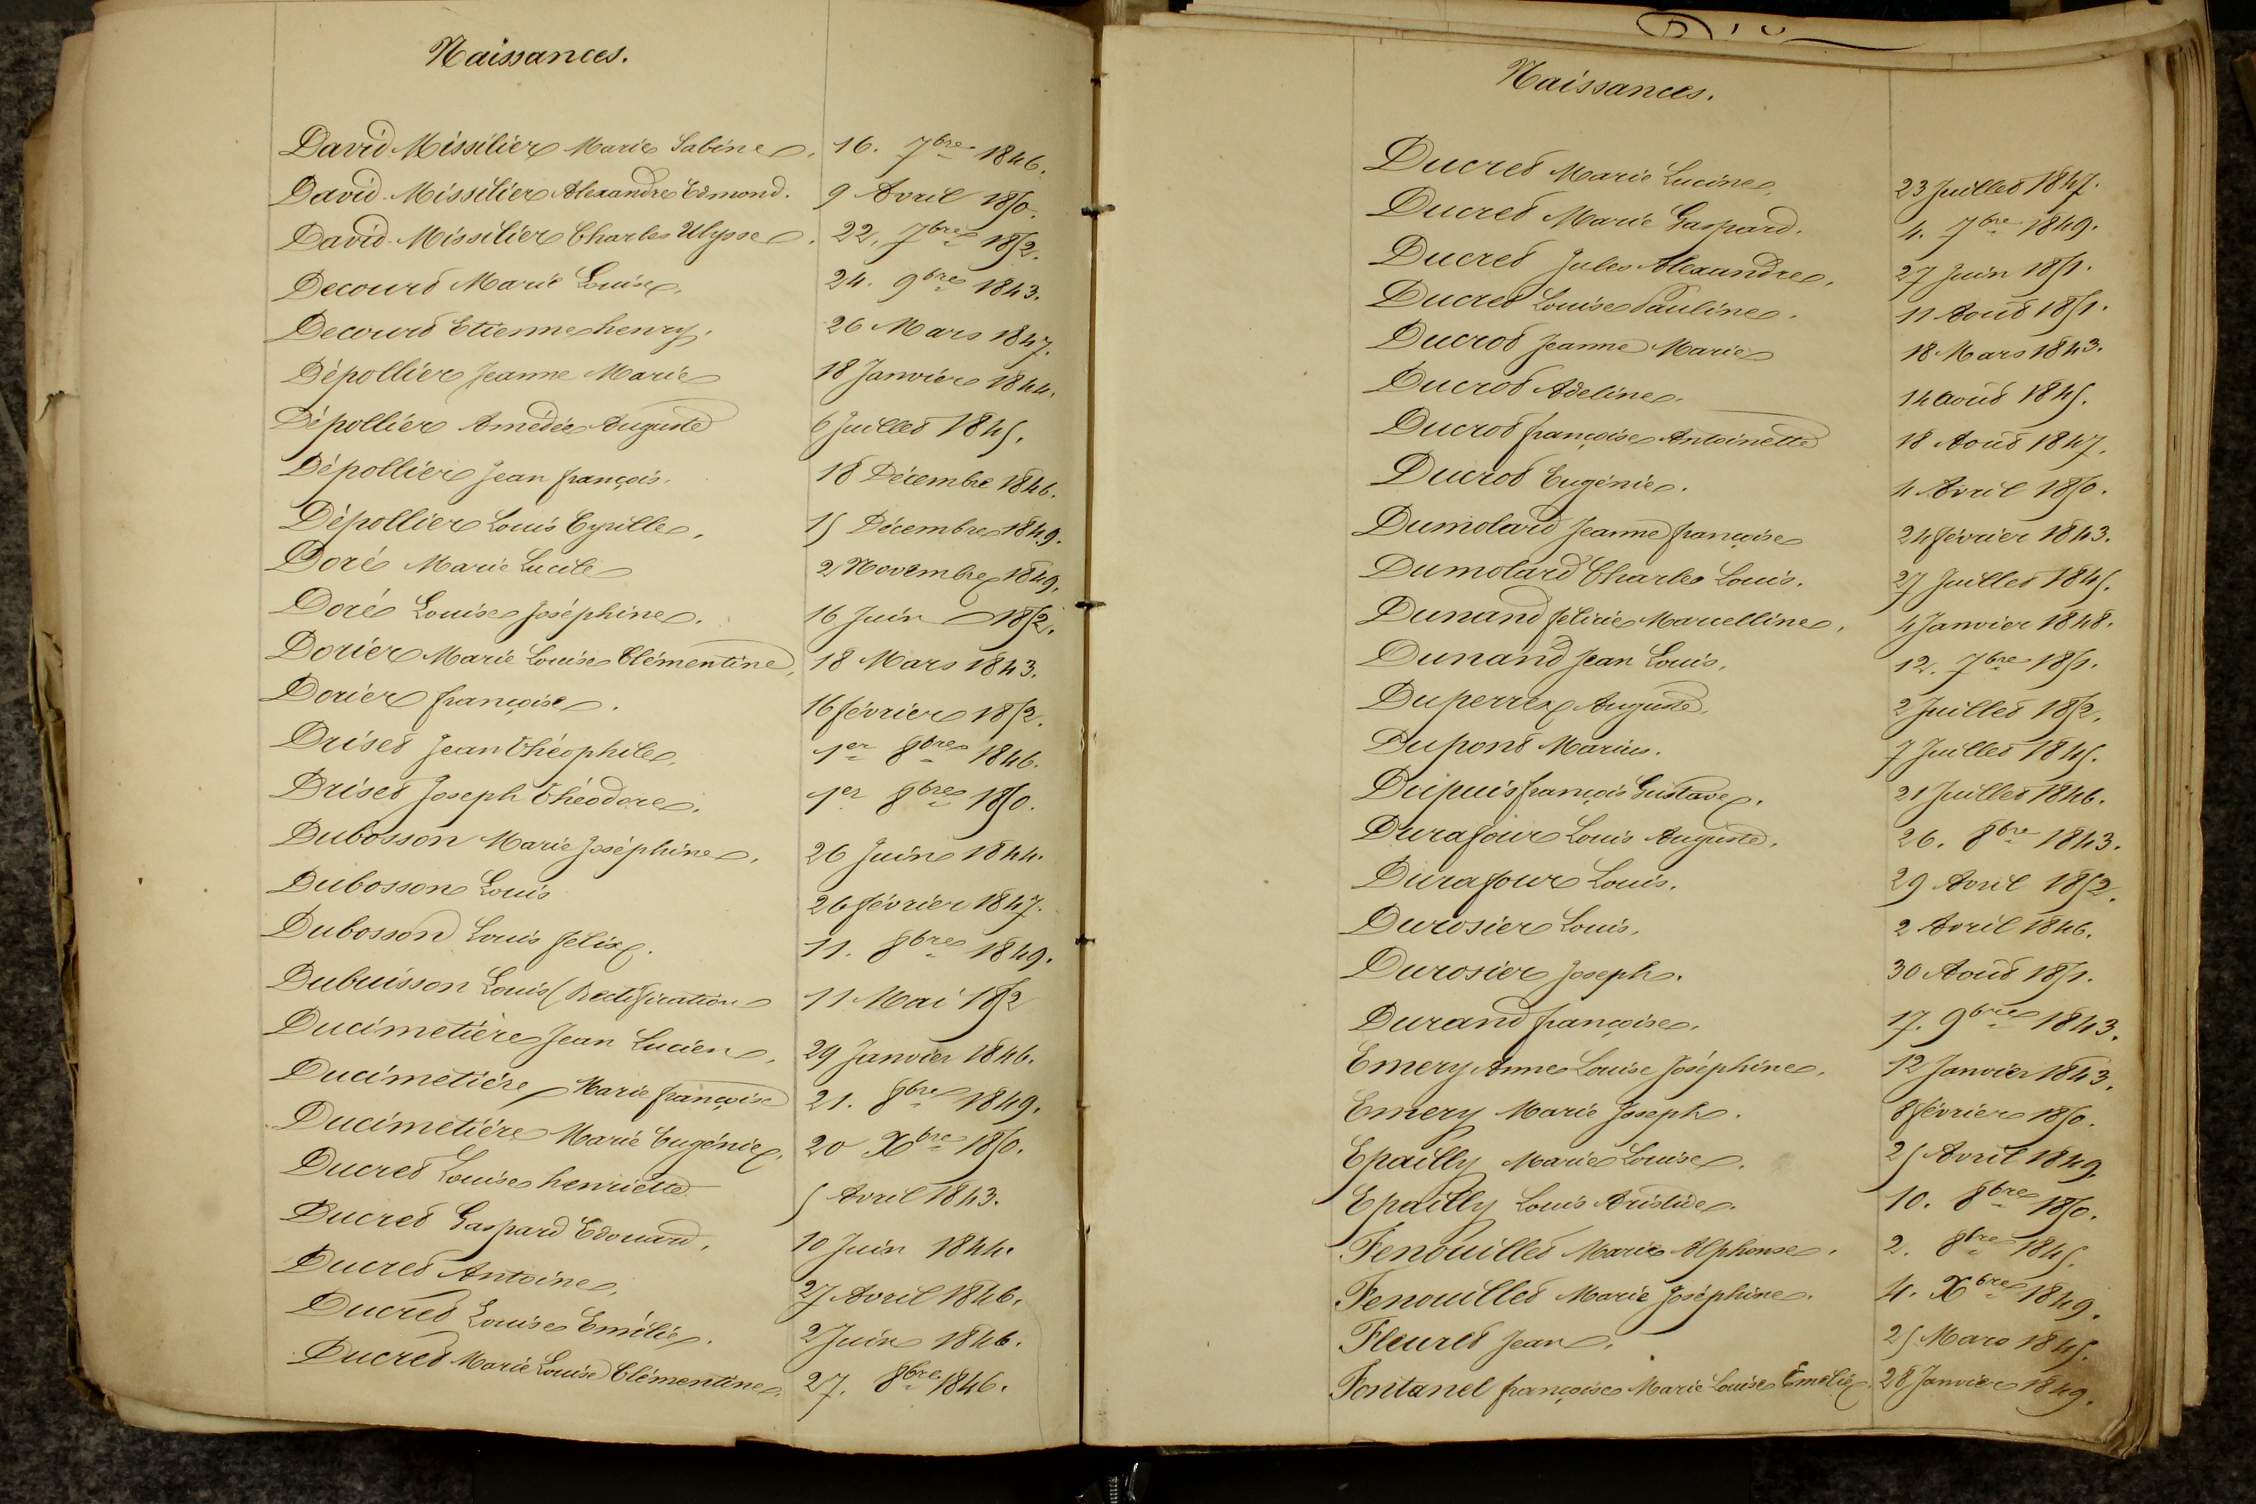 Naissances.
David-Missilier Marie Sabine. 16. 7bre 1846.
David-Missilier Alexandre Edmond. 9 Avril 1850.
David-Missilier Charles Ulysse. 22. 7bre 1852.
Decourt Marie Louise. 24. 9bre 1843.
Decourt Etienne henry. 26 Mars 1847.
Dépollier Jeanne Marie 18 Janvier 1844.
Dépollier Amédée Auguste 6 Juillet 1845.
Dépollier Jean françois. 18 Décembre 1846.
Dépollier Louis Cyrille. 15 Décembre 1849.
Doré Marie Lucile 2 Novembre 1849.
Doré Louise Joséphine. 16 Juin 1852.
Dorier Marie Louise Clémentine. 18 Mars 1843.
Dorier françoise. 16 février 1852.
Driset Jean Théophile. 1er 8bre 1846.
Driset Joseph Théodore. 1er 8bre 1850.
Dubosson Marie Joséphine. 26 Juin 1844.
Dubosson Louis 26 février 1847.
Dubosson Louis félix. 11. 8bre 1849.
Dubuisson Louis (Rectification 11 Mai 1852
Ducimetière Jean Lucien. 29 Janvier 1846.
Ducimetière Marie françoise 21. 8bre 1849.
Ducimetière Marie Eugénie. 20 Xbre 1850.
Ducret Louise henriette 5 Avril 1843.
Ducret Gaspard Edouard. 10 Juin 1844.
Ducret Antoine. 27 Avril 1846.
Ducret Louise Emélie. 2 Juin 1846.
Ducret Marie Louise Clémentine. 27. 8bre 1846.
Naissances.
Ducret Marie Lucine. 23 Juillet 1847.
Ducret Marie Gaspard. 4. 7bre 1849.
Ducret Jules Alexandre. 27 Juin 1851.
Ducret Louise Pauline. 11 Août 1851.
Ducrot Jeanne Marie 18 Mars 1843.
Ducrot Adeline. 14 août 1845.
Ducrot françoise Antoinette 18 Août 1847.
Ducrot Eugénie. 4 Avril 1850.
Dumolard Jeanne françoise 24 février 1843.
Dumolard Charles Louis. 27 Juillet 1845.
Dunand félicie Marcelline. 4 Janvier 1848.
Dunand Jean Louis. 12. 7bre 1851.
Duperrex Auguste. 2 Juillet 1852.
Dupont Marius. 7 Juillet 1845.
Dupuis françois Gustave. 21 Juillet 1846.
Durafour Louis Auguste. 26. 8bre 1843.
Durafour Louis. 29 Avril 1852.
Durosier Louis. 2 Avril 1846.
Durosier Joseph. 30 Août 1851.
Durand françoise. 17. 9bre 1843.
Emery Anne Louise Joséphine. 12 Janvier 1843.
Emery Marie Joseph. 8 février 1850.
Epailly Marie Louise. 25 Avril 1849.
Epailly Louis Aristide. 10. 8bre 1850.
Fenouillet Marie Alphonse. 2. 8bre 1845.
Fenouillet Marie Joséphine. 4. Xbre 1849.
Fleuret Jean. 25 Mars 1845.
Fontanel françoise Marie Louise Emélie. 28 Janvier 1849.